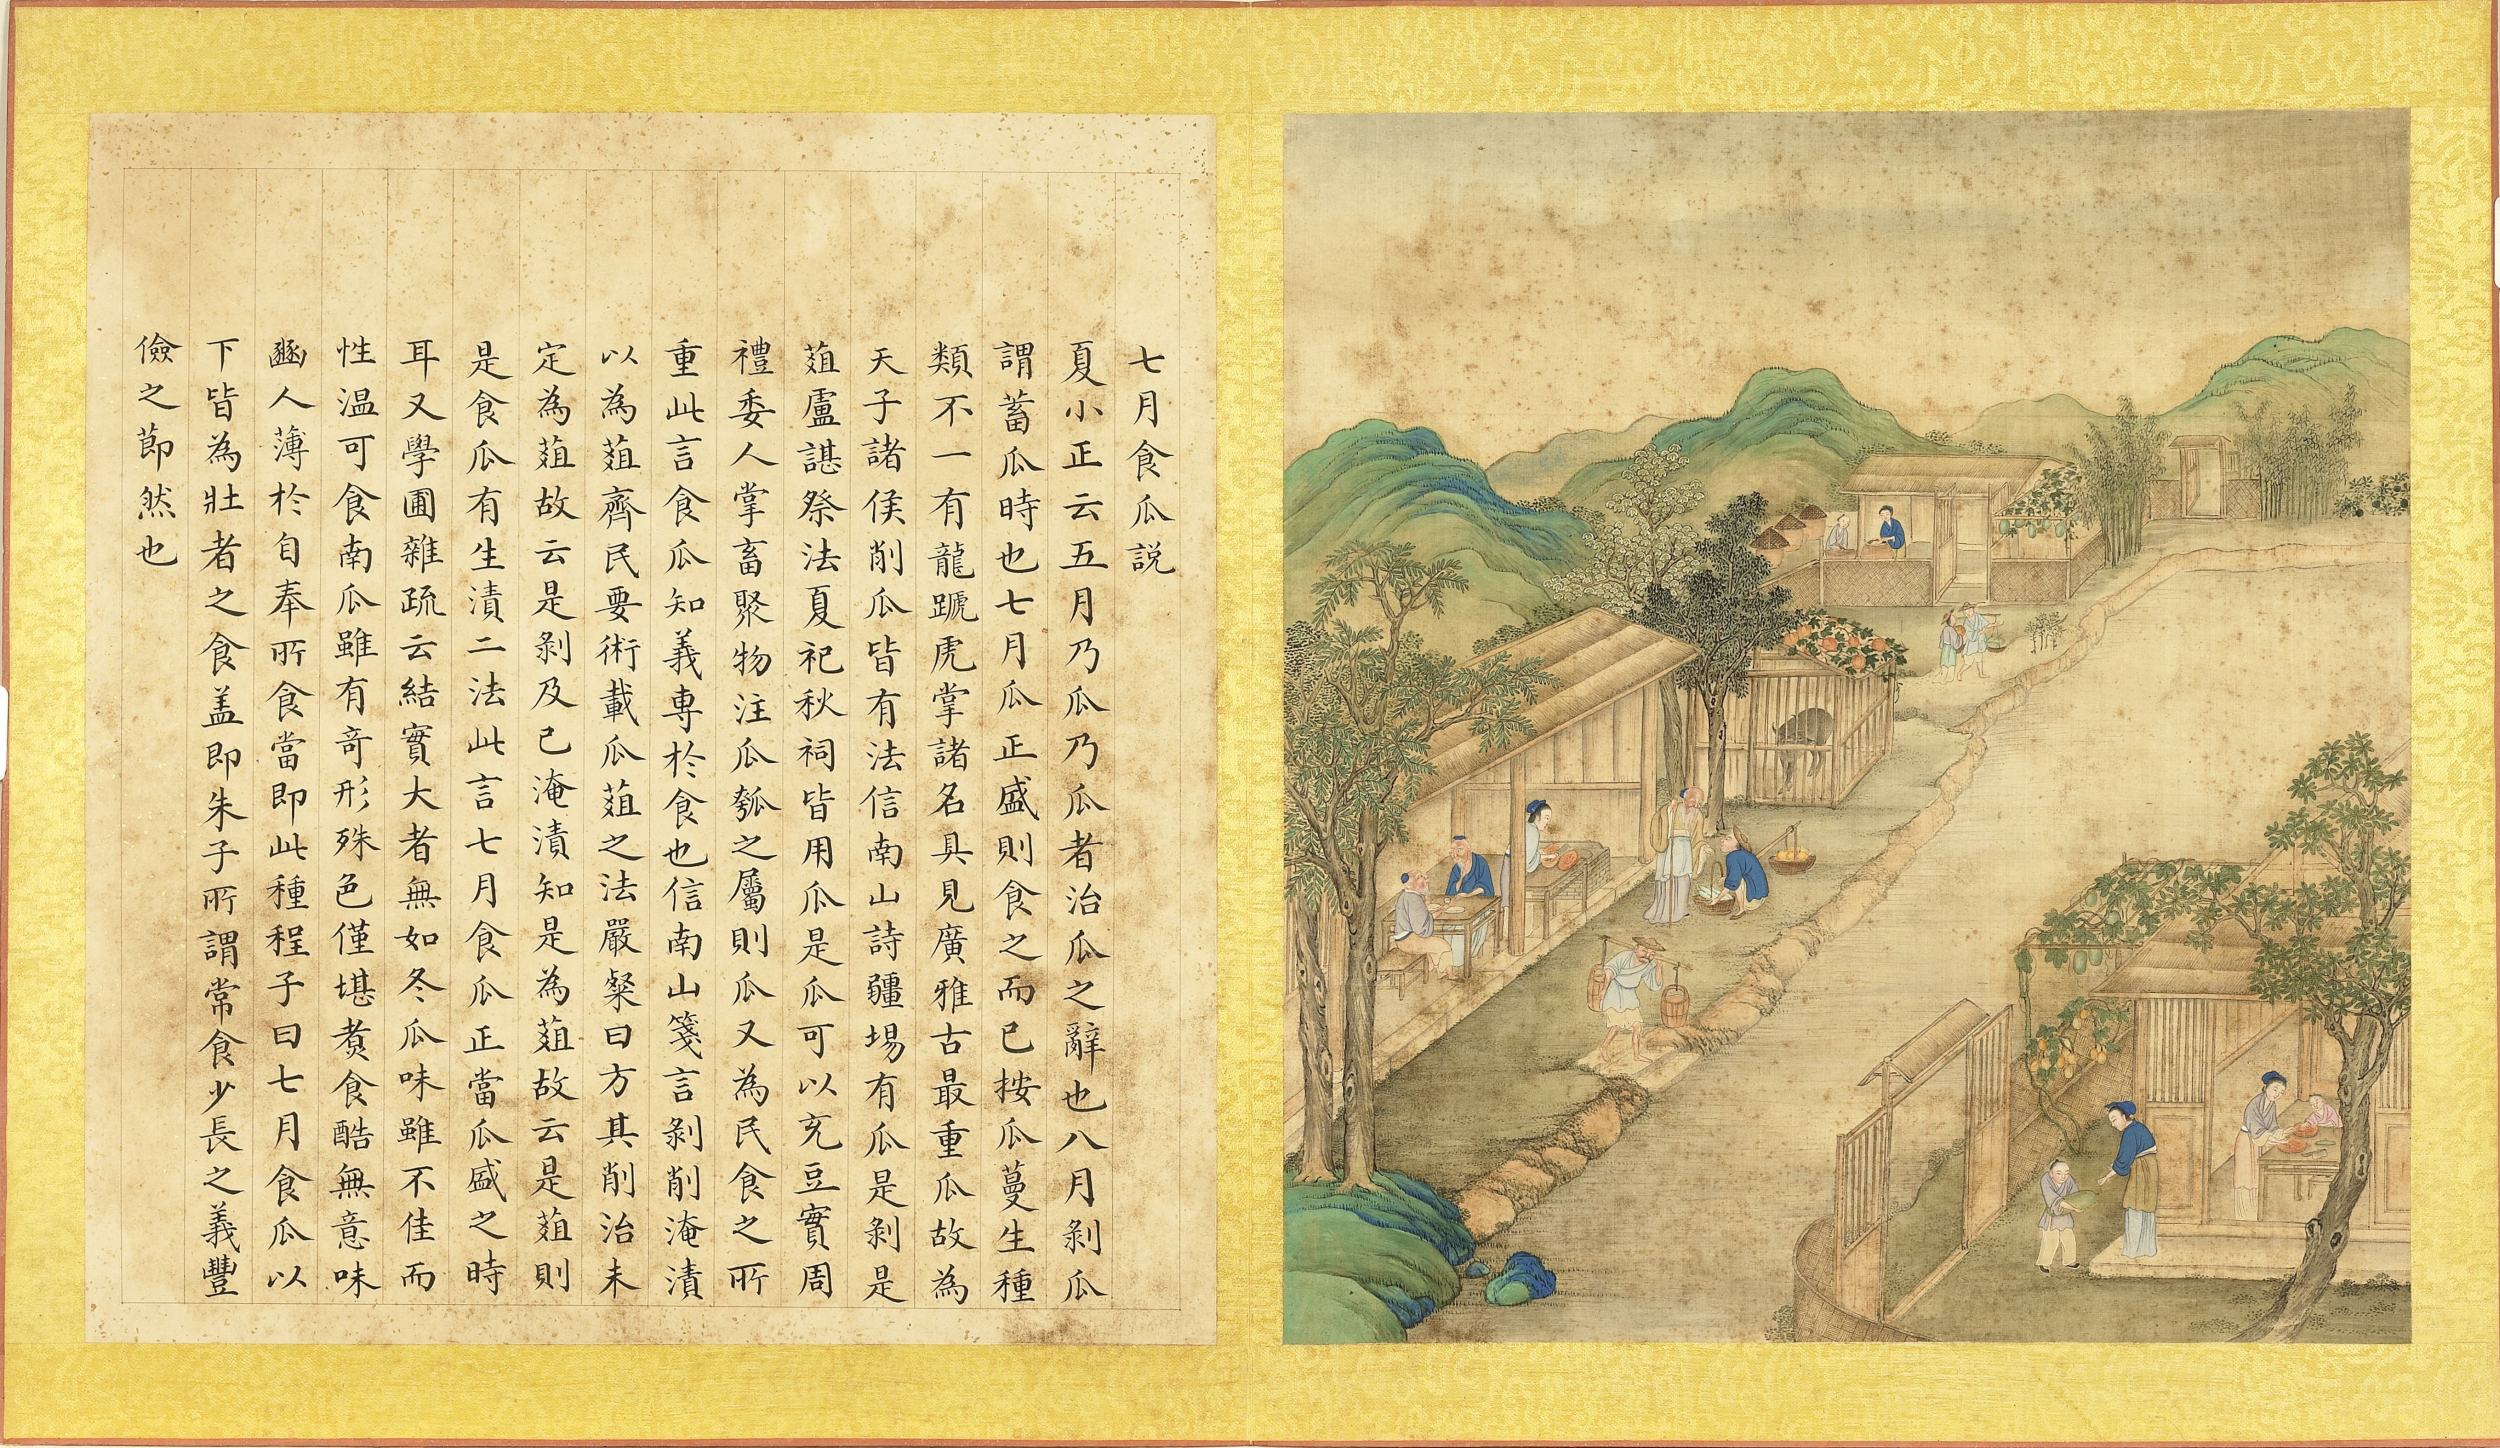 七月食瓜説
夏小正云五月乃瓜乃瓜者治瓜之辭也八月剝瓜
謂蓄瓜時也七月瓜正盛則食之而已按瓜蔓生種
類不一有龍蹏虎掌諸名具見廣雅古最重瓜故為
天子諸侯削瓜皆有法信南山詩疆埸有瓜是剝是
菹盧諶祭法夏祀秋祠皆用瓜是瓜可以充豆實周
禮委人掌畜聚物注瓜瓠之屬則瓜又為民食之所
重此言食瓜知義專於食也信南山箋言剝削淹漬
以為菹齊民要術載瓜菹之法嚴粲曰方其削治未
定為菹故云是剝及已淹漬知是為菹故云是菹則
是食瓜有生漬二法此言七月食瓜正當瓜盛之時
耳又學圃雜疏云結實大者無如冬瓜味雖不佳而
性温可食南瓜雖有奇形殊色僅堪煮食酷無意味
豳人薄於自奉所食當即此種程子曰七月食瓜以
下皆為壯者之食盖即朱子所謂常食少長之義豐
儉之節然也